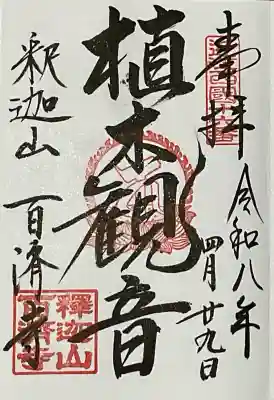 奉拝
令和八年
四月廿九日
植木観音
釈迦山 百済寺
釋迦山
百済寺